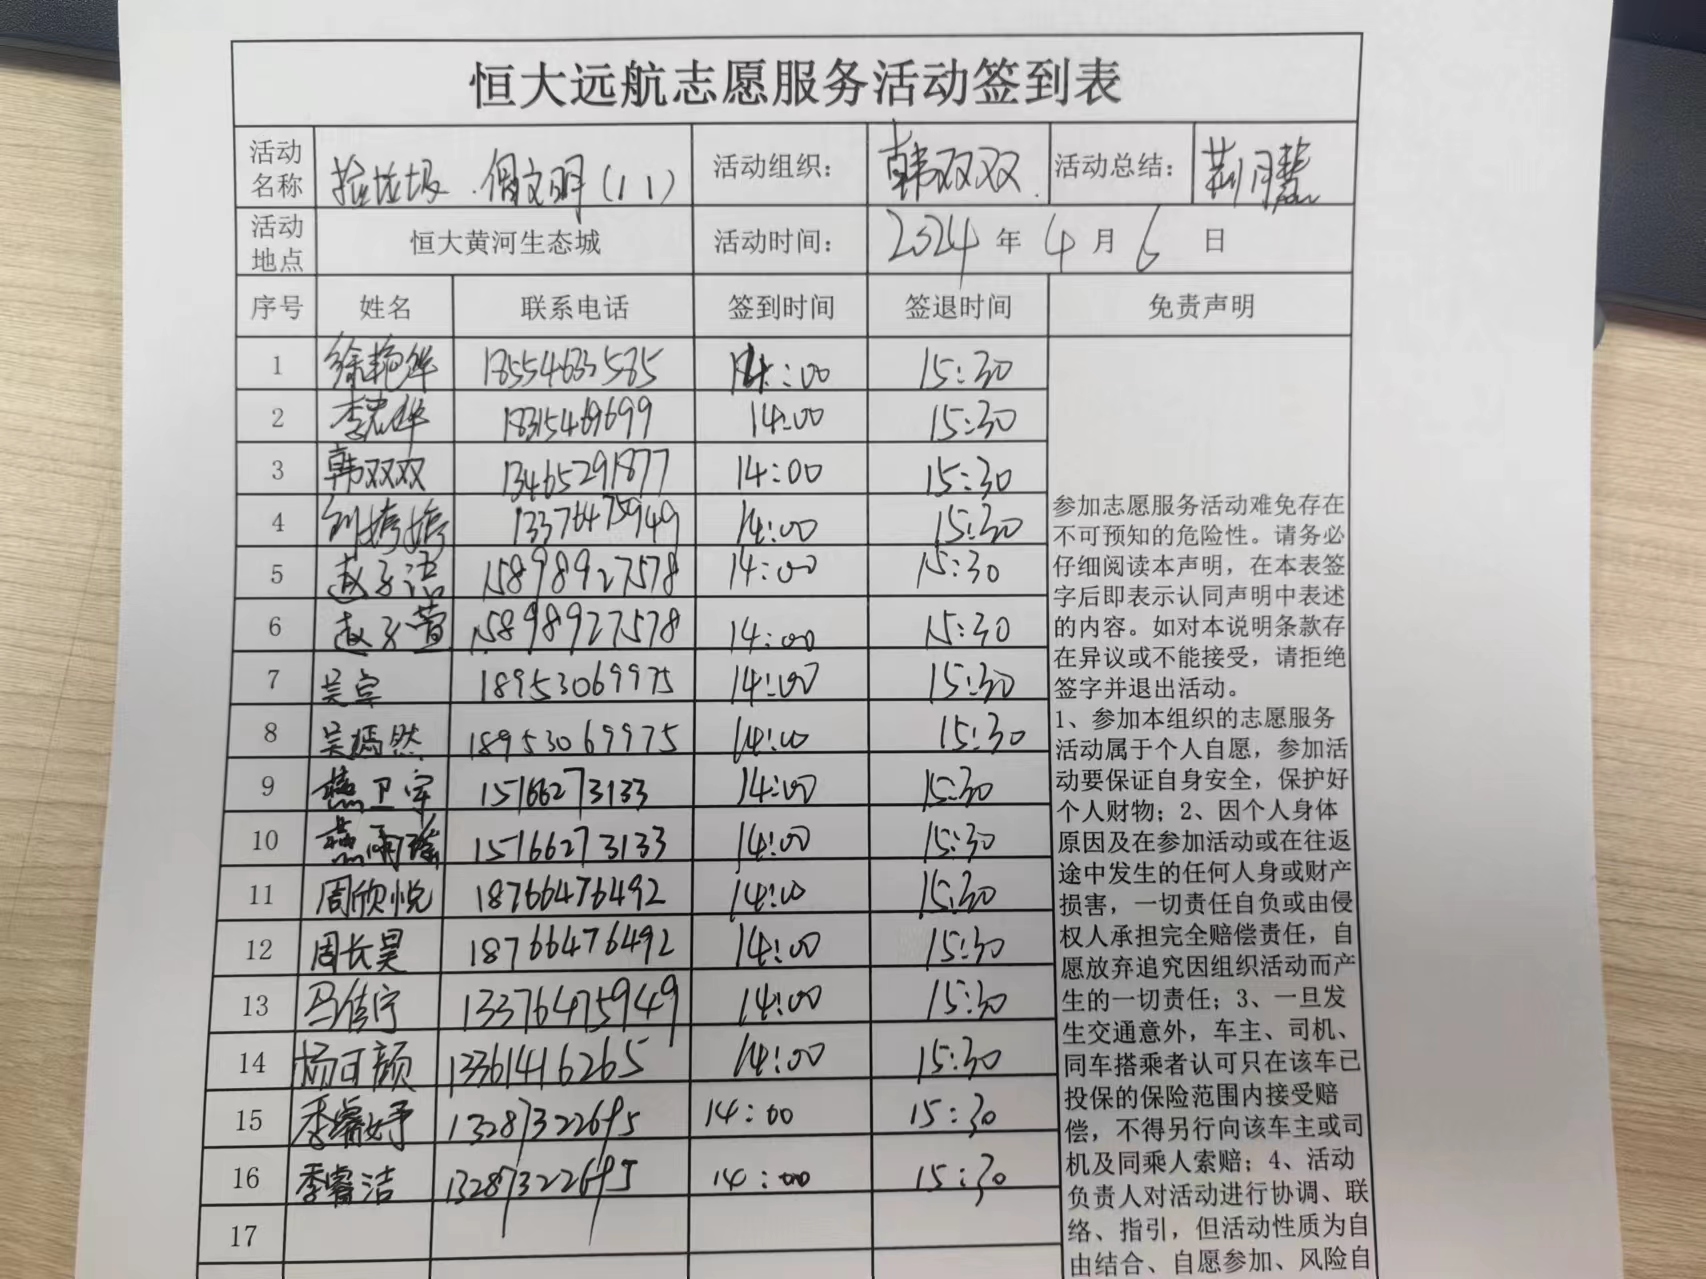 恒大远航志愿服务活动签到表
活动名称 捡垃圾.倡文明(11) 活动组织: 韩双双. 活动总结: 荆月慧
活动地点 恒大黄河生态城 活动时间: 2024年4月6日
序号 姓名 联系电话 签到时间 签退时间 免责声明
1 徐艳华 18554633585 14:00 15:30
2 李忠华 18315469699 14:00 15:30
3 韩双双 13465291877 14:00 15:30
4 刘婷婷 13376475949 14:00 15:30
5 赵子语 15898927578 14:00 15:30
6 赵子萱 15898927578 14:00 15:30
7 吴宗 18953069975 14:00 15:30
8 吴嫣然 18953069975 14:00 15:30
9 燕卫宇 15166273133 14:00 15:30
10 燕雨瑶 15166273133 14:00 15:30
11 周欣悦 18766476492 14:00 15:30
12 周长昊 18766476492 14:00 15:30
13 马佳宁 13376475949 14:00 15:30
14 杨可颜 13361416265 14:00 15:30
15 季睿妤 13287322695 14:00 15:30
16 季睿洁 13287322695 14:00 15:30
17
参加志愿服务活动难免存在
不可预知的危险性。请务必
仔细阅读本声明，在本表签
字后即表示认同声明中表述
的内容。如对本说明条款存
在异议或不能接受，请拒绝
签字并退出活动。
1、参加本组织的志愿服务
活动属于个人自愿，参加活
动要保证自身安全，保护好
个人财物；2、因个人身体
原因及在参加活动或在往返
途中发生的任何人身或财产
损害，一切责任自负或由侵
权人承担完全赔偿责任，自
愿放弃追究因组织活动而产
生的一切责任；3、一旦发
生交通意外，车主、司机、
同车搭乘者认可只在该车已
投保的保险范围内接受赔
偿，不得另行向该车主或司
机及同乘人索赔；4、活动
负责人对活动进行协调、联
络、指引，但活动性质为自
由结合、自愿参加、风险自